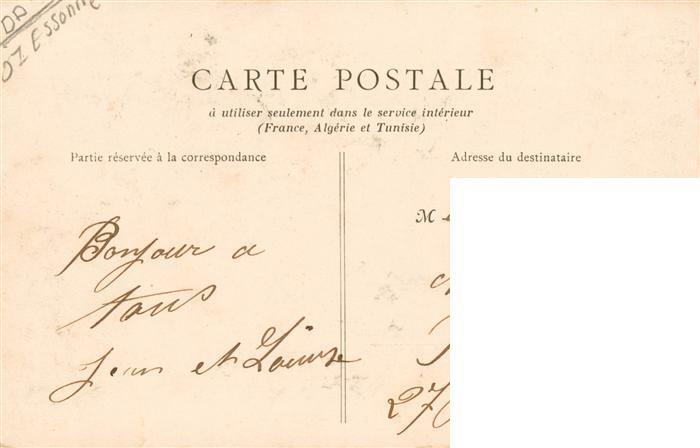 DA
01 Essonne
CARTE POSTALE
à utiliser seulement dans le service intérieur
(France, Algérie et Tunisie)
Partie réservée à la correspondance
Adresse du destinataire
M
Bonjour a
tous
Jean et Louise
27